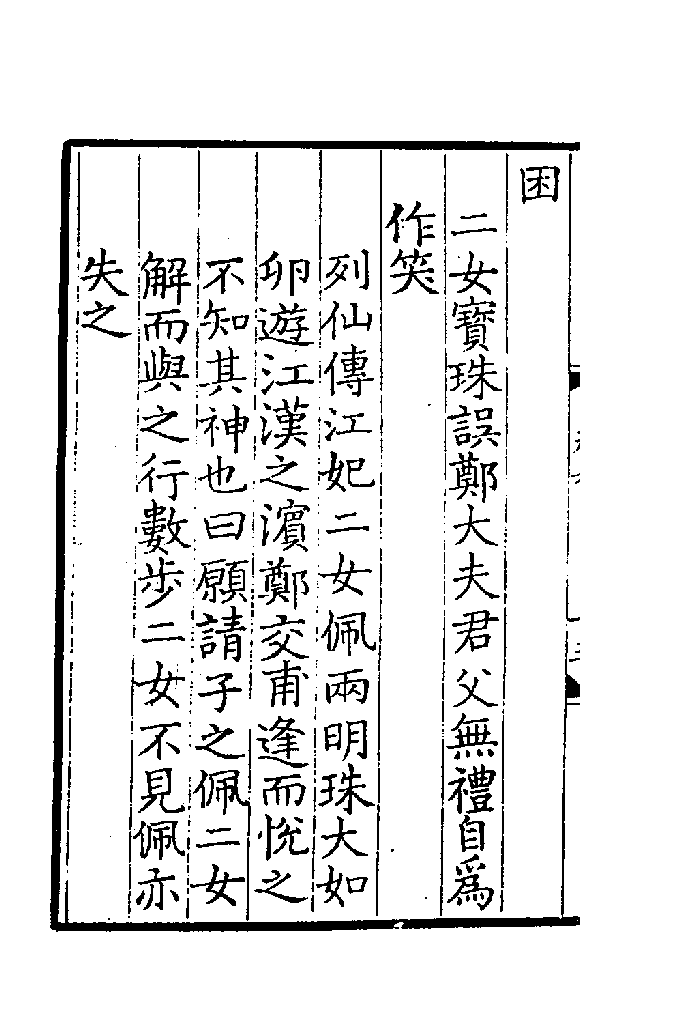 困
二女寶珠誤鄭大夫君父無禮自為
作笑
列仙傳江妃二女佩兩明珠大如
卵遊江漢之濵鄭交甫逢而悅之
不知其神也曰願請子之佩二女
解而與之行數步二女不見佩亦
失之